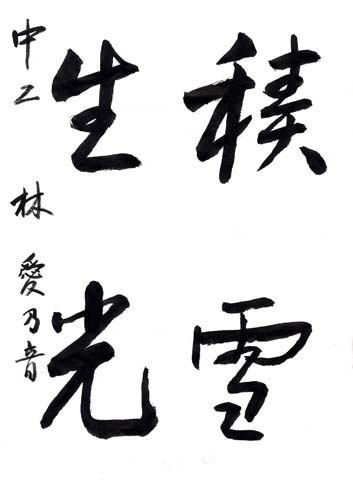 積雪
生光
中二 林 愛乃音